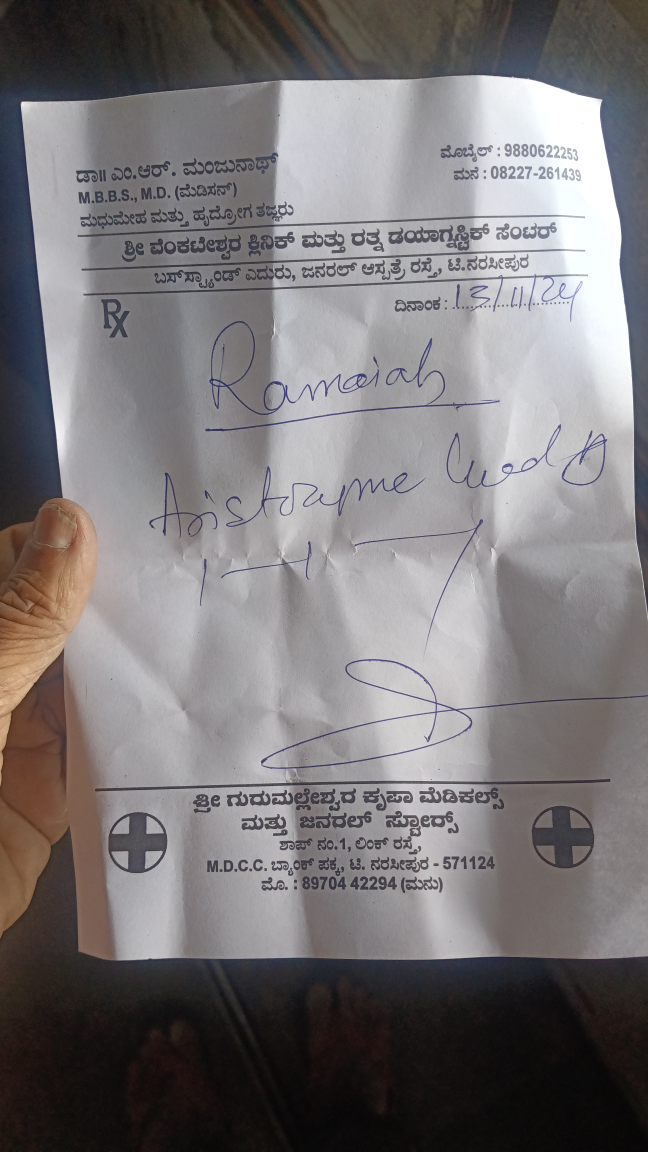 ಡಾ॥ ಎಂ.ಆರ್. ಮಂಜುನಾಥ್
M.B.B.S., M.D. (ಮೆಡಿಸನ್)
ಮಧುಮೇಹ ಮತ್ತು ಹೃದ್ರೋಗ ತಜ್ಞರು
ಮೊಬೈಲ್ : 9880622253
ಮನೆ : 08227-261439
ಶ್ರೀ ವೆಂಕಟೇಶ್ವರ ಕ್ಲಿನಿಕ್ ಮತ್ತು ರತ್ನ ಡಯಾಗ್ನಸ್ಟಿಕ್ ಸೆಂಟರ್
ಬಸ್‌ಸ್ಟ್ಯಾಂಡ್ ಎದುರು, ಜನರಲ್ ಆಸ್ಪತ್ರೆ ರಸ್ತೆ, ಟಿ.ನರಸೀಪುರ
Rx
ದಿನಾಂಕ : 13/11/24
Ramaiah
Aristozyme
1-1
ಶ್ರೀ ಗುರುಮಲ್ಲೇಶ್ವರ ಕೃಪಾ ಮೆಡಿಕಲ್ಸ್
ಮತ್ತು ಜನರಲ್ ಸ್ಟೋರ್ಸ್
ಶಾಪ್ ನಂ.1, ಲಿಂಕ್ ರಸ್ತೆ,
M.D.C.C. ಬ್ಯಾಂಕ್ ಪಕ್ಕ, ಟಿ. ನರಸೀಪುರ - 571124
ಮೊ. : 89704 42294 (ಮನು)